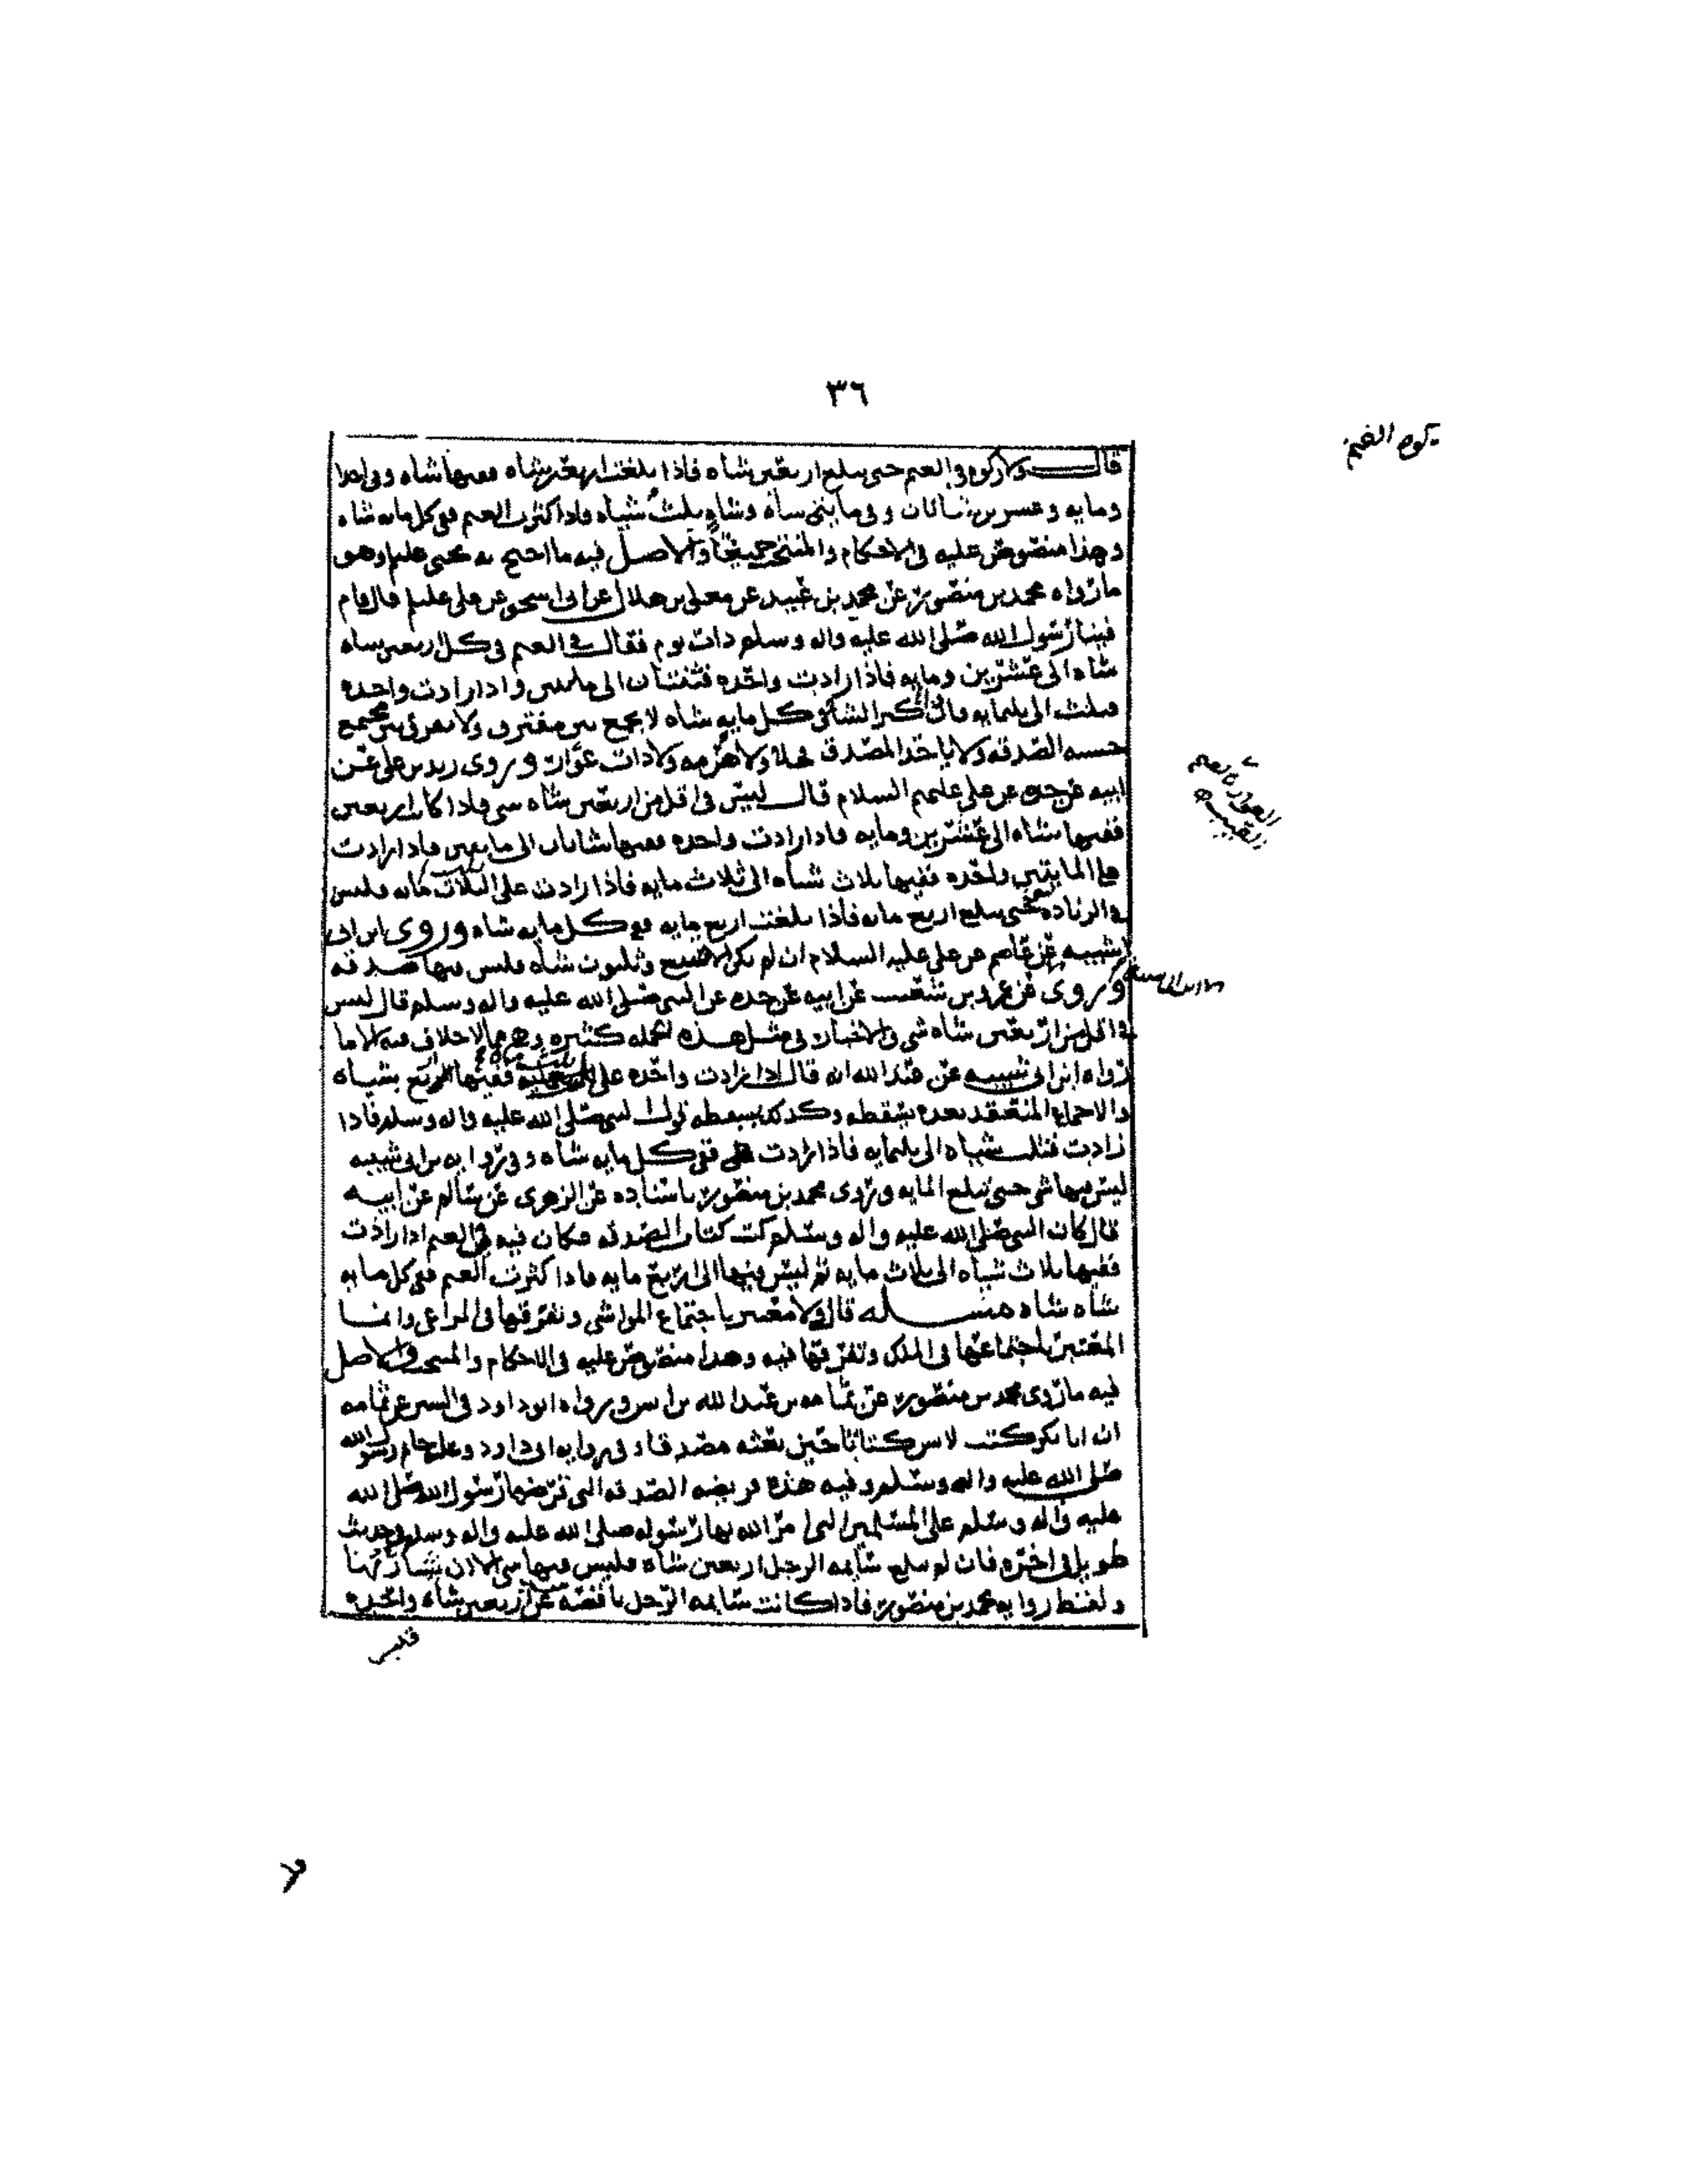 ٣٦
زكوة الغنم
قال ولا زكوة في الغنم حتى تبلغ اربعين شاه فاذا بلغت اربعين شاه ففيها شاه وفي احدا
ومايه وعشرين شاتان وفي مايتي شاة وشاةٍ ثلث شياه فاذا كثرت الغنم ففي كل مايه شاه
وهذا منصوص عليه في الاحكام والمنتخب جميعًا والاصل فيه ما احتج به يحيى عليلم وهو
ما رواه محمد بن منصور عن محمد بن عبيد عن معلى بن هلال عن ابي اسحق عن علي عليلم قال قام
فينا رسول الله صلى الله عليه واله وسلم ذات يوم فقال في الغنم في كل اربعين شاه
شاه الى عشرين ومايه فاذا زادت واحده فثنتان الى مايتين واذا زادت واحده
فثلث الى ثلثمايه فان كثر الشا ففي كل مايه شاه لا يجمع بين مفترق ولا يفرق بين مجتمع
خشيه الصدقه ولا ياخذ المصدق فحلا ولا هرمه ولا ذات عوار وروى زيد بن علي عن
العوار بضم
العيب
ابيه عن جده عن علي عليهم السلام قال ليس في اقل من اربعين شاه شي فاذا كانت اربعين
ففيها شاه الى عشرين ومايه فاذا زادت واحده ففيها شاتان الى مايتين فاذا زادت
على المايتين واحده ففيها ثلاث شياه الى ثلاث مايه فاذا زادت على الثلاث مايه فليس
في الزياده شي حتى تبلغ اربع مايه فاذا بلغت اربع مايه ففي كل مايه شاه وروى ابن ابي
شيبه عن عاصم عن علي عليه السلام ان لم يكن الا تسع وثلثون شاه فليس فيها صدقه
وروى عن عمرو بن شعيب عن ابيه عن جده عن النبي صلى الله عليه واله وسلم قال ليس
في اقل من اربعين شاه شي والاخبار في مثل هذه الجمله كثيره وهو مما لا خلاف فيه الا ما
رواه ابن ابي شيبه عن عبد الله انه قال اذا زادت واحده على ثلث مايه ففيها اربع شياه
والاجماع المنعقد بعده يسقطه وكذلك يسقطه قول النبي صلى الله عليه واله وسلم فاذا
زادت فثلث شياه الى ثلثمايه فاذا زادت ففي كل مايه شاه وفي روايه بن ابي شيبه
ليس فيها شي حتى تبلغ المايه وروى محمد بن منصور باسناده عن الزهري عن سالم عن ابيه
قال كان النبي صلى الله عليه واله وسلم كتب كتاب الصدقه فكان فيه في الغنم اذا زادت
ففيها ثلاث شياه الى ثلاث مايه ثم ليس فيها الى اربع مايه فاذا كثرت الغنم ففي كل مايه
شاه شاه مسـله قال ولا معتبر باجتماع المواشي وتفرقها في المراعي وانما
المعتبر باجتماعها في الملك وتفرقها فيه وهذا منصوص عليه في الاحكام والمنتخب والاصل
فيه ما روى محمد بن منصور عن ثمامه بن عبد الله بن انس ورواه ابو داود في السنن عن ثمامه
ان ابا بكر كتب لانس كتابًا حين بعثه مصدقا وفي روايه ابي داود وعليه خاتم رسول الله
صلى الله عليه واله وسلم وفيه هذه فريضه الصدقه التي فرضها رسول الله صلى الله
عليه واله وسلم على المسلمين التي امر الله بها رسوله صلى الله عليه واله وسلم وحديث
طويل في اخره فان لم تبلغ سايمه الرجل اربعين شاه فليس فيها شي الا ان يشا ربها
ولفظ روايه محمد بن منصور فاذا كانت سايمه الرجل ناقصه عن اربعين شاه واحده
فليس